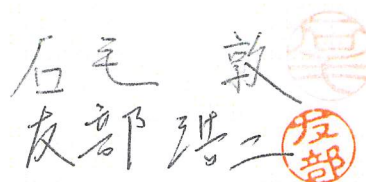 石毛 敦
友部 浩二
友部